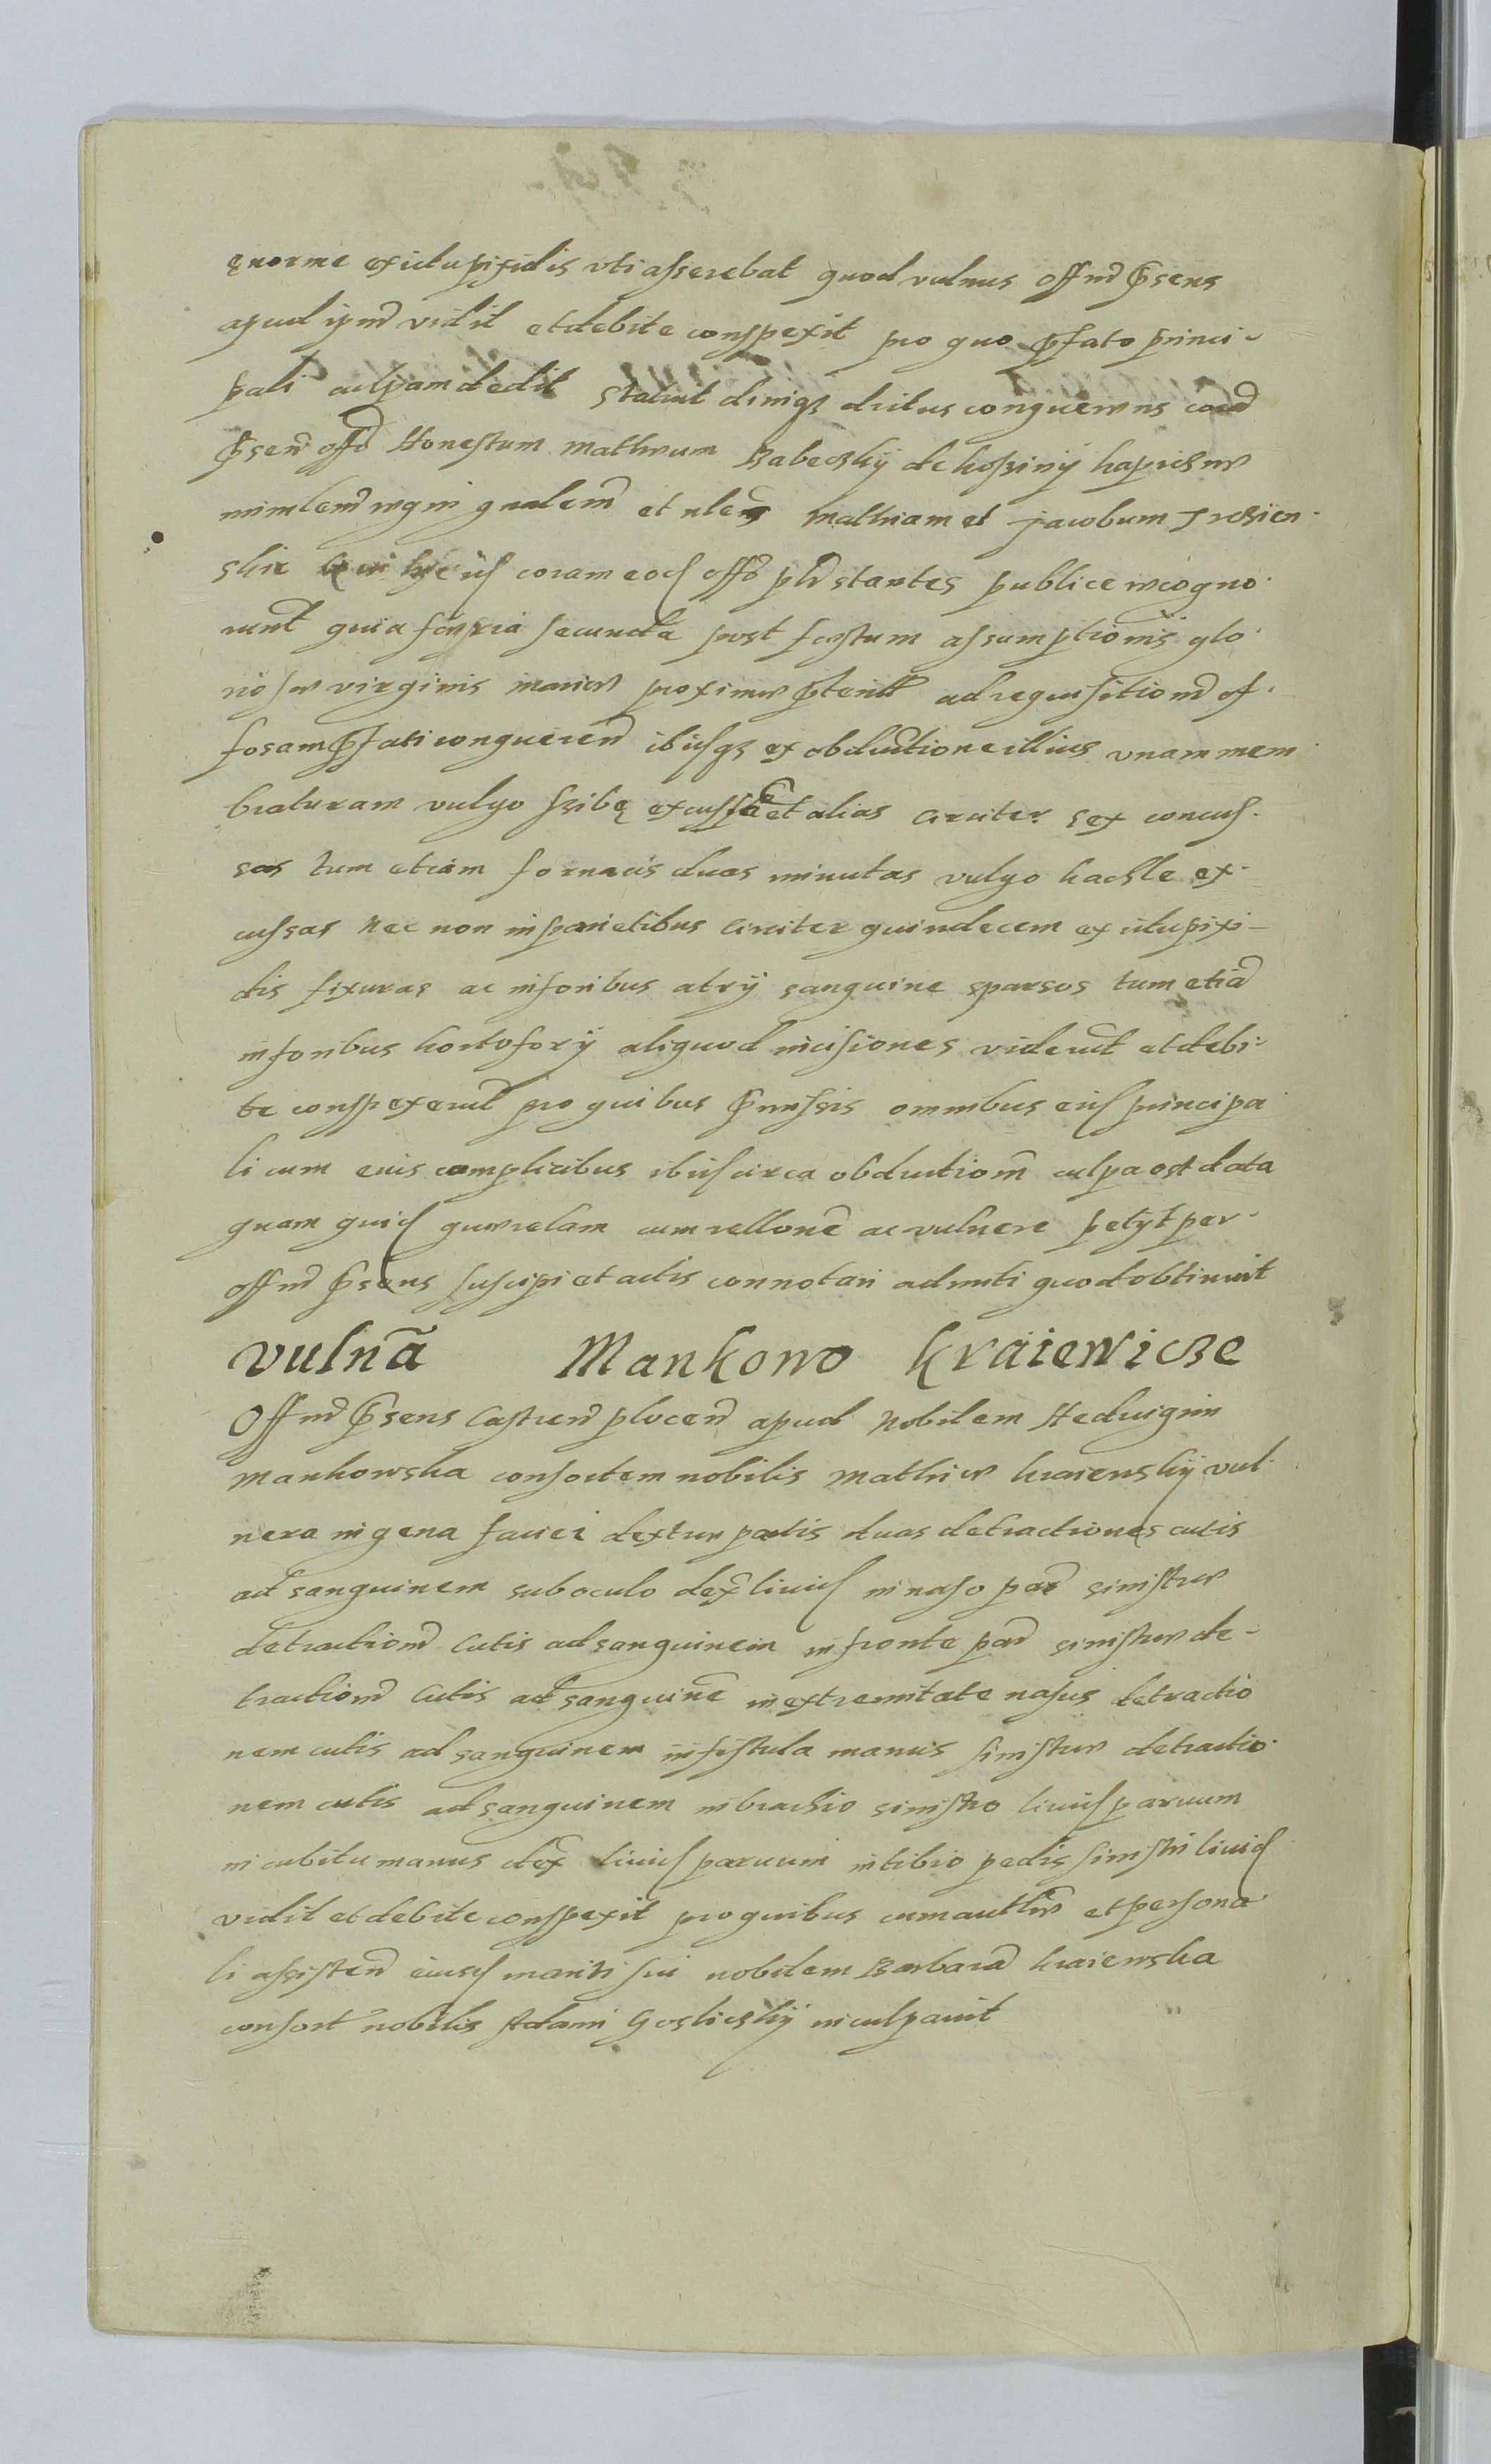 ęnorme ex ictu pixidis vti asserebat quod vulnus offm p̃sens
apud ipm̃ vidit et debite conspexit pro quo p̃fato princi-
pali culpam dedit Statuit deniqꝫ dictus conquerens corã
p̃señ offõ Honestum Mathæum
mimlem rgni gnalem̃ et nles Mathiam et Jacobum
skie coram eod offõ psl̃r stantes publice recogno-
runt quia feria secunda post festum assumptionis glo-
riosæ virginis mariæ proximæ p̃terita ad requisitionem̃
p̃fati conquereñ ibidqꝫ ex obductione illius vnam mem-
braturam vulgo szibę excussã et alias circiter sex concus-
sas tum etiam fornacis duas minutas vulgo kachle ex-
cussas nec non in parietibus circiter quindecem ex ictu pixi-
dis fixuras ac in foribus atrij sanguine sparsos tum etiã
in foribus hortofory aliquod incisiones viderũt et debi-
te conspexerũt pro quibus p̃missis omnibus eid principa
li cum euis complicibus ibid circa obductiom̃ culpa est data
quam quid querelam cum rellone ac vulnere petijt per
offm̃ p̃sens suscipi et actis connotari admitti quod obtinuit
vulnã Mankowo Kraiewicze
Offm̃ p̃sens Castreñ ploceñ apud Nobilem Heduigim
Mankowska consortem nobilis Mathiæ Kraiewskij vul-
nera in gena faciei dextræ partis duas detractiones cutis
ad sanguinem sub oculo dex̃ liuid in naso par̃ sinistræ
detractionem̃ Cutis ad sanguinem in fronte par̃ sinistræ de-
tractionem̃ Cutis ad sanguinẽ in extremitate nasus detractio
nem cutis ad sanguinem in fistula manus sinistræ detractio-
nem cutis ad sanguinem in brachio sinistro liuid paruum
in cubitu manus dex̃ liuid paruum in tibio pedis sinistri liuid
vidit et debite conspexit pro quibus cum autth̃æ et persona
li assisteñ eiusd mariti sui nobilem Barbarã Kraiewska
consort̃ nobilis Adami Goslickij inculpauit